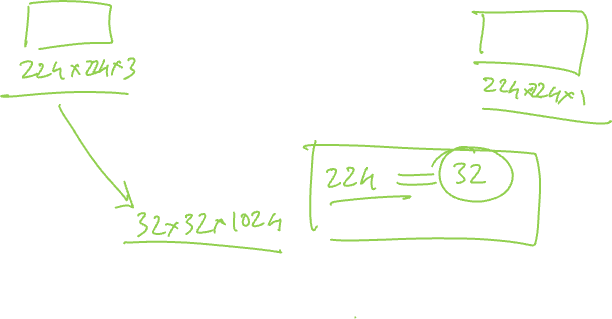 224x224x3
224x224x1
224 = 32
32x32x1024